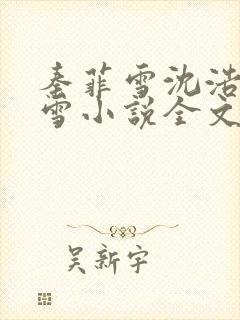 秦菲雪沈浩
雪小说全文
吴新宇